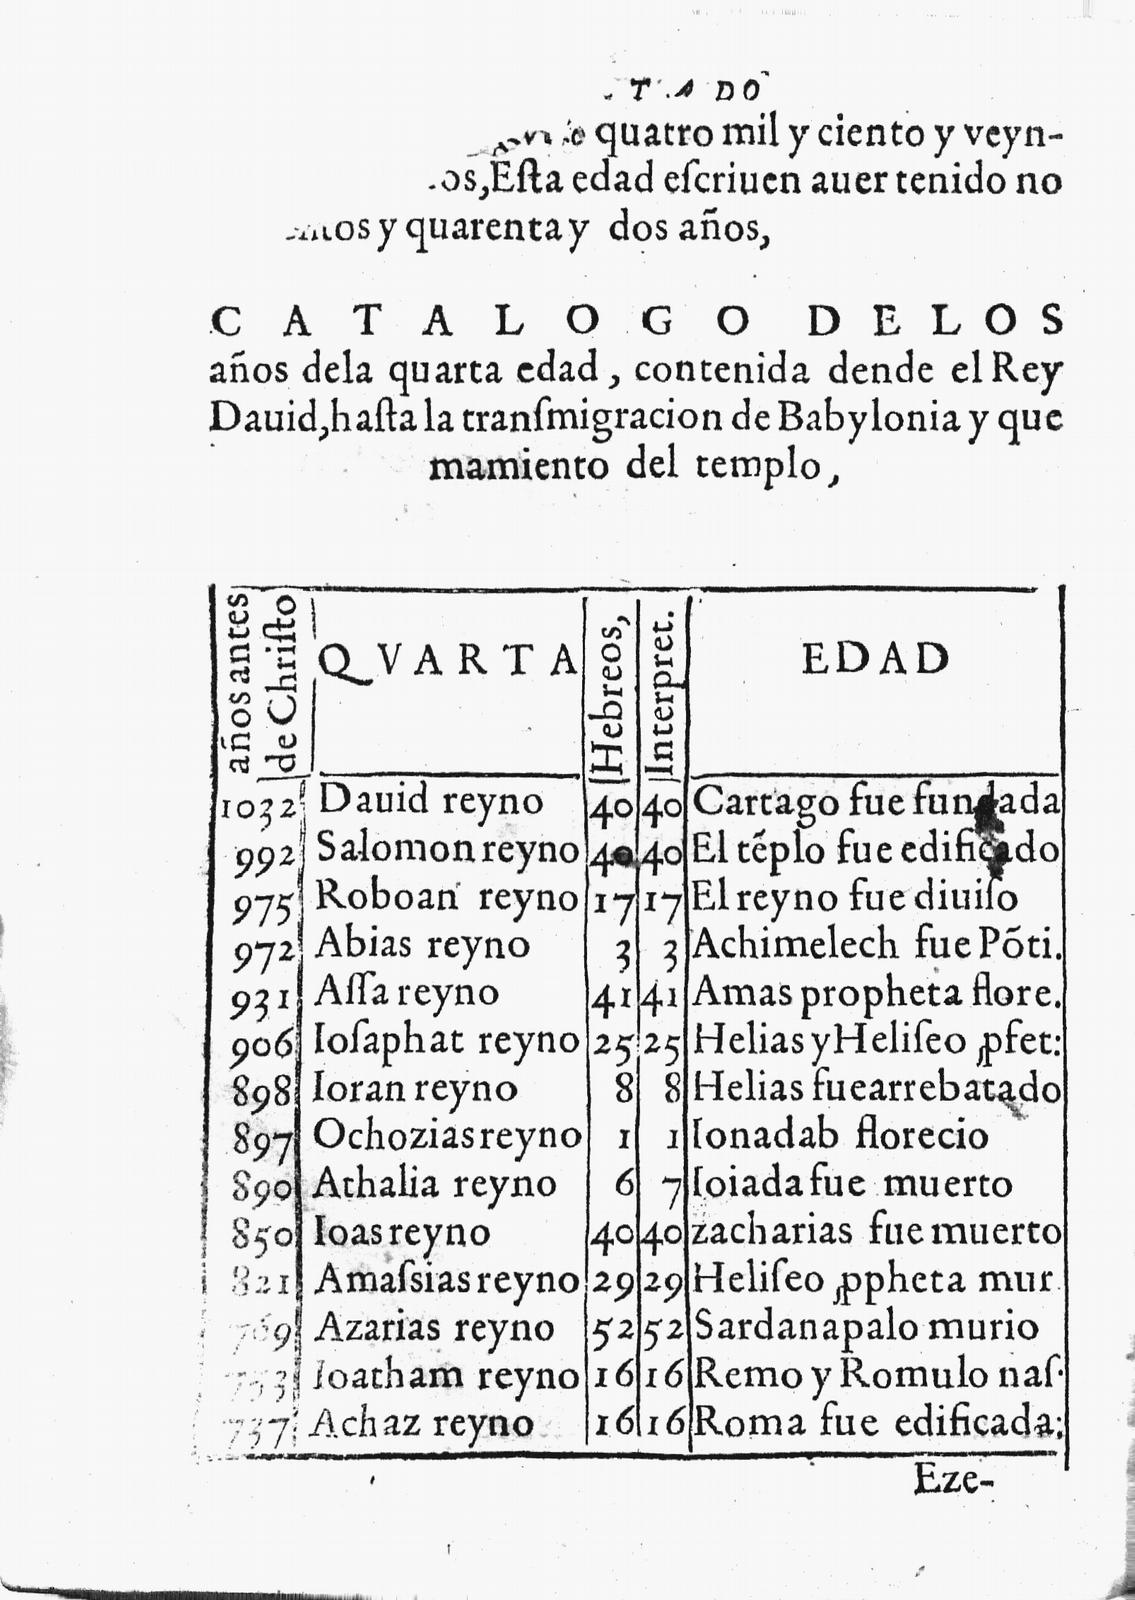 TADO
quatro mil y ciento y veyn-
os,Eſta edad eſcriuen auer tenido no
tos y quarenta y dos años,
CATALOGO DELOS
años dela quarta edad, contenida dende el Rey
Dauid,haſta la tranſmigracion de Babylonia y que
mamiento del templo,
años antes de Chriſto QVARTA Hebreos, Interpret. EDAD
1032 Dauid reyno 40 40 Cartago fue fundada
992 Salomon reyno 40 40 El tẽplo fue edificado
975 Roboan reyno 17 17 El reyno fue diuiſo
972 Abias reyno 3 3 Achimelech fue Põti.
931 Aſſa reyno 41 41 Amas propheta flore.
906 Ioſaphat reyno 25 25 Helias y Heliſeo ꝓfet:
898 Ioran reyno 8 8 Helias fue arrebatado
897 Ochozias reyno 1 1 Ionadab florecio
890 Athalia reyno 6 7 Ioiada fue muerto
850 Ioas reyno 40 40 zacharias fue muerto
821 Amaſsias reyno 29 29 Heliſeo ꝓpheta mur
769 Azarias reyno 52 52 Sardanapalo murio
753 Ioatham reyno 16 16 Remo y Romulo naſ.
737 Achaz reyno 16 16 Roma fue edificada:
Eze-